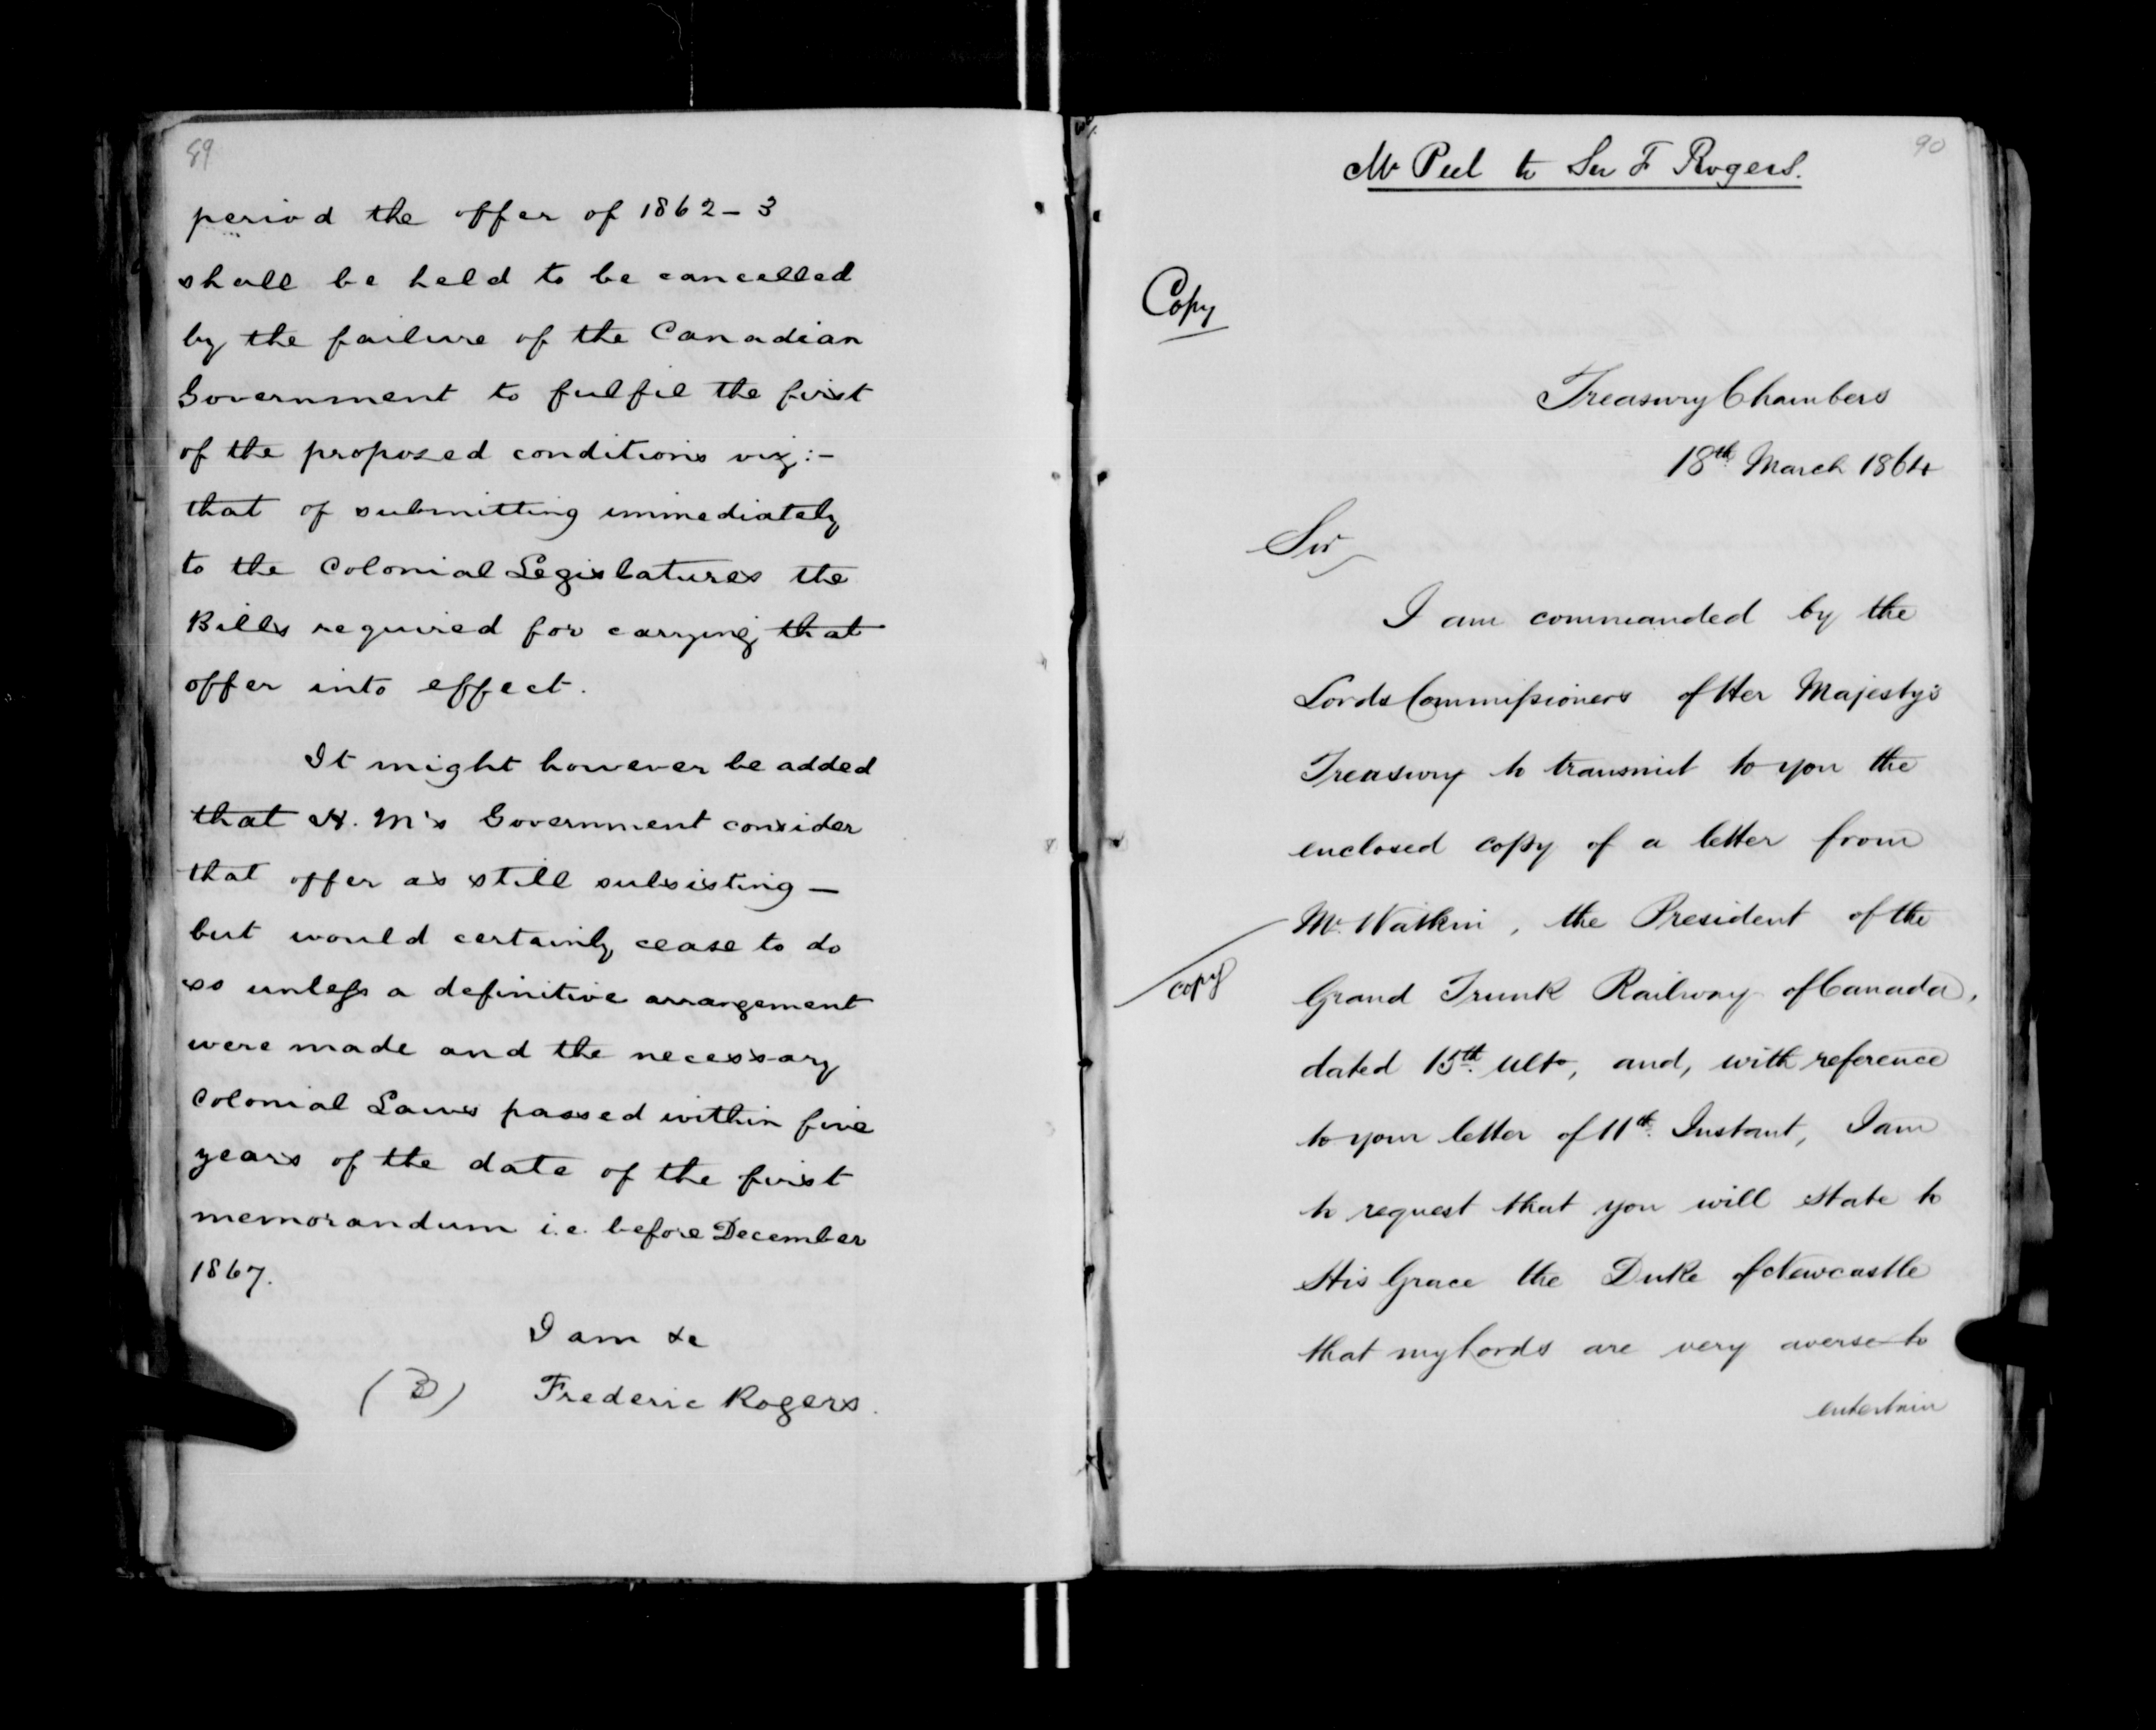 89
period the offer of 1862-3
shall be held to be cancelled
by the failure of the Canadian
Government to fulfil the first
of the proposed conditions viz:-
that of submitting immediately
to the Colonial Legislatures the
Bills required for carrying that
offer into effect.
It might however be added
that H. M's Government consider
that offer as still subsisting —
but would certainly cease to do
so unless a definitive arrangement
were made and the necessary
Colonial Laws passed within five
years of the date of the first
memorandum i.e. before December
1867.
I am &c
Frederic Rogers.
90
Mr Peel to Sir F Rogers.
Copy
Treasury Chambers
18th March 1864
Sir
I am commanded by the
Lords Commissioners of Her Majesty's
Treasury to transmit to you the
enclosed copy of a letter from
Mr. Watkin, the President of the
copy
Grand Trunk Railway of Canada,
dated 15th. ulto, and, with reference
to your letter of 11th. Instant, I am
to request that you will state to
His Grace the Duke of Newcastle
that my Lords are very averse to
entertain